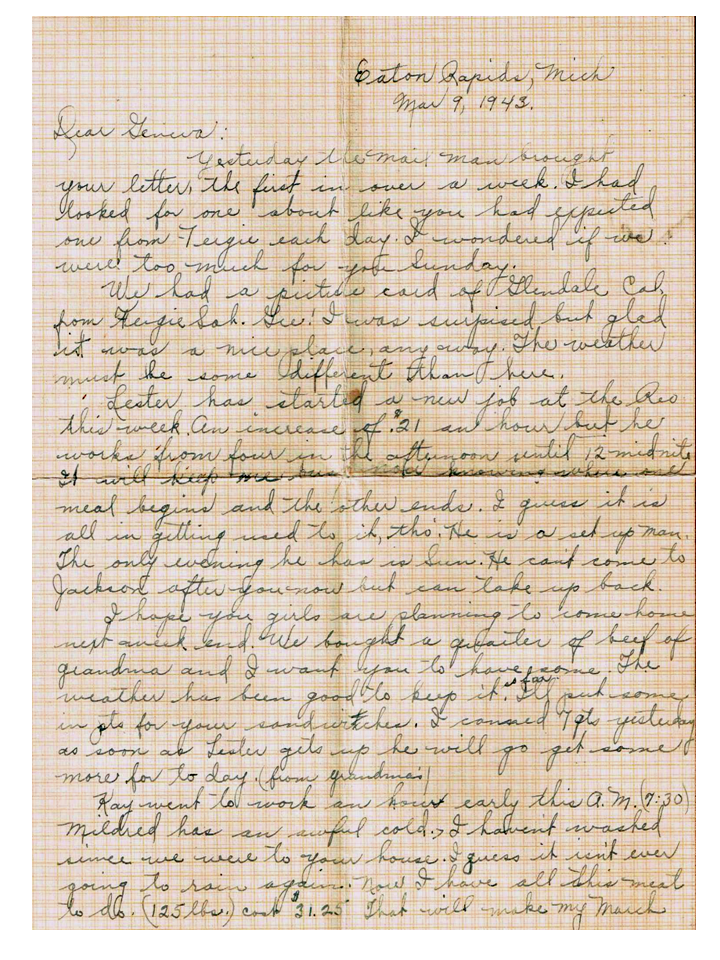 Eaton Rapids, Mich
Mar 9, 1943.
Dear Geneva:
Yesterday the mail man brought
your letter, the first in over a week. I had
looked for one about like you had expected
one from Fergie each day. I wondered if we
were too much for you Sunday.
We had a picture card of Glendale Cal.
from Fergie Sat. Gee! I was surpised but glad
it was a nice place, any way. The weather
must be some different than here.
Lester has started a new job at the Reo
this week. An increase of $.21 an hour but he
works from four in the afternoon until 12 midnite
It will keep me busy now knowing where one
meal begins and the other ends. I guess it is
all in getting used to it, tho'. He is a set up man.
The only evening he has is Sun. He can't come to
Jackson after you now but can take up back.
I hope you girls are planning to come home
next week end. We bought a quarter of beef of
grandma and I want you to have some. The
weather has been good to keep it so far. I'll put some
in pts for your sandwitches. I canned 7 qts yesterday
as soon as Lester gets up he will go get some
more for to day. (from grandma's)
Kay went to work an hour early this A.M. (7:30)
Mildred has an awful cold. I havent washed
since we were to your house. I guess it isn't ever
going to rain again. Now I have all this meat
to do. (125 lbs.) cost $31.25 That will make my March